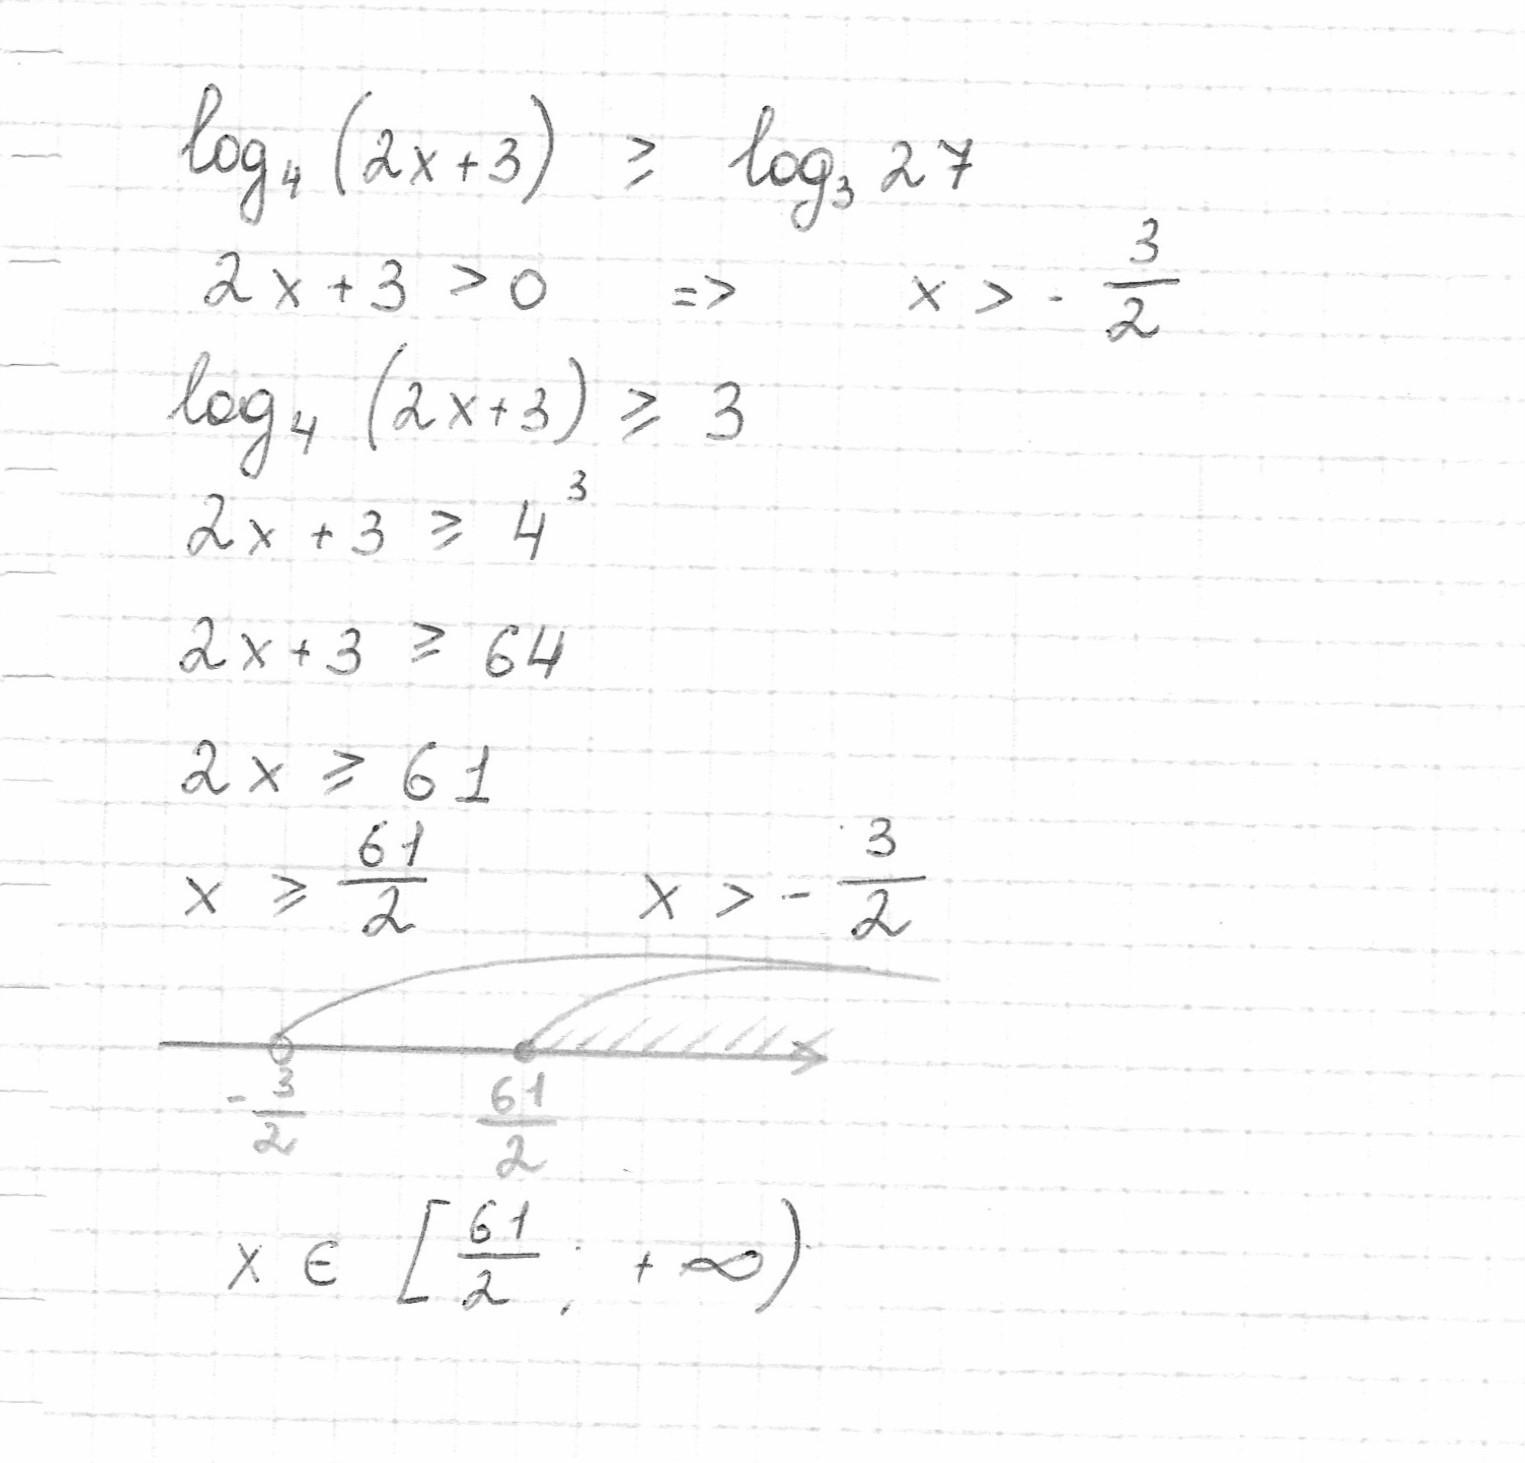 log₄ (2x+3) ⩾ log₃ 27
2x+3 > 0 => x > - 3/2
log₄ (2x+3) ⩾ 3
2x+3 ⩾ 4³
2x+3 ⩾ 64
2x ⩾ 61
x ⩾ 61/2 x > - 3/2
- 3/2 61/2
x ∈ [61/2; +∞)